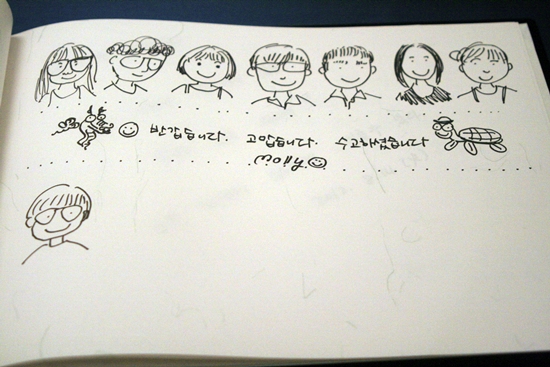 반갑습니다. 고맙습니다. 수고하셨습니다